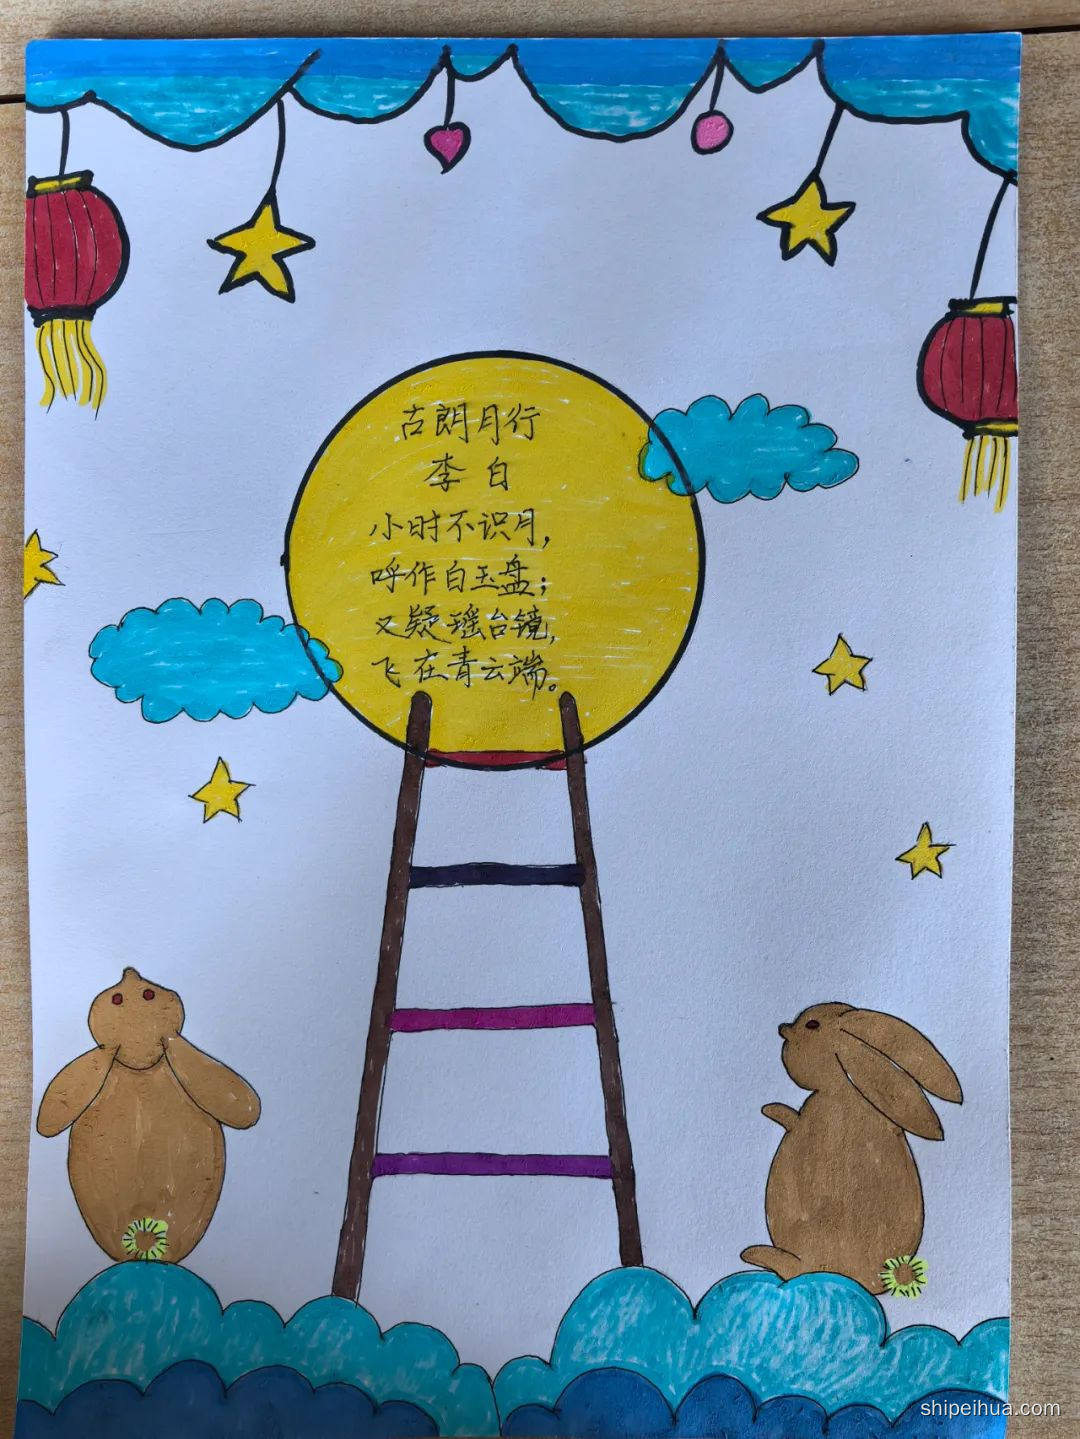 古朗月行
李白
小时不识月，
呼作白玉盘；
又疑瑶台镜，
飞在青云端。
shipeihua.com